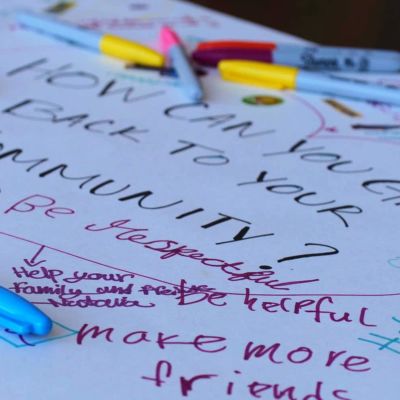 HOW CAN YOU GI
BACK TO YOUR
OMMUNITY?
Be Respectful
Help your
family and friends
Natalia
Be helpful
make more
friends